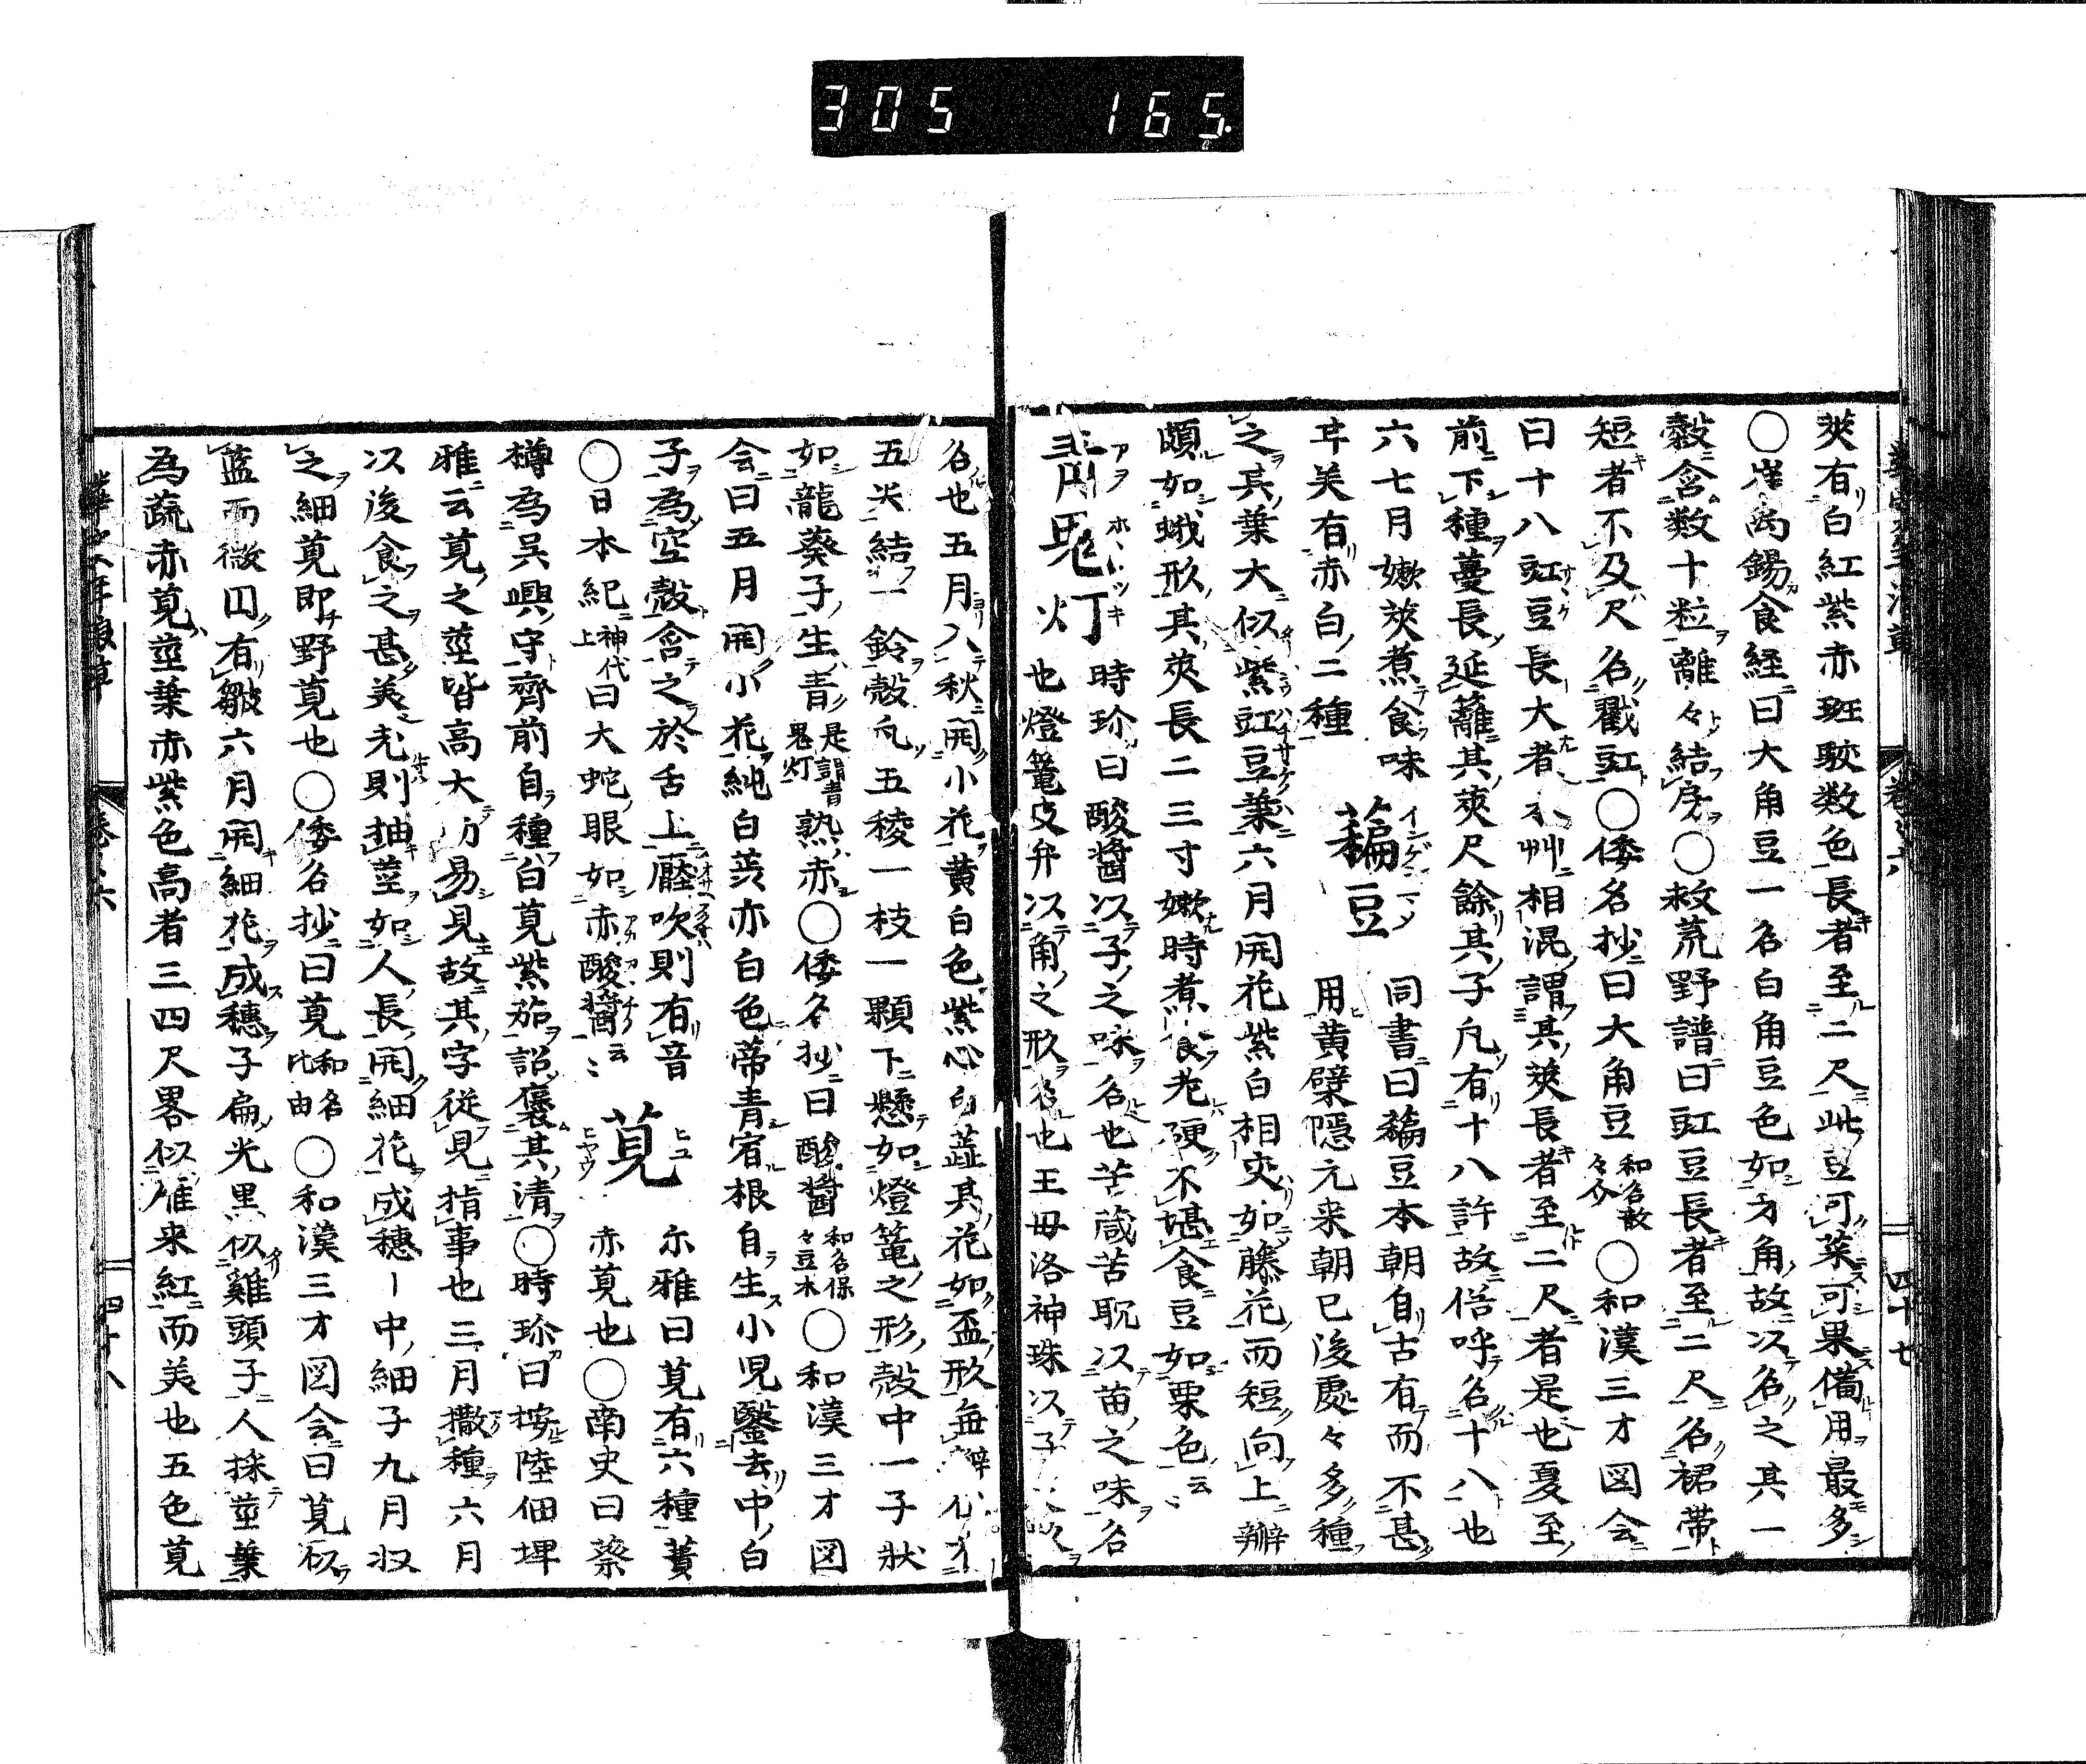 305 165
莢有白紅紫赤斑駁数色長者至二尺此豆可菜可果備用最多
○崔禹錫食経曰大角豆一名白角豆色如牙角故以名之其一
殼含数十粒離々結房○救荒野譜曰豇豆長者至二尺名裙帯
短者不及尺名戳豇○倭名抄曰大角豆 和名散々介 ○和漢三才図会
曰十八豇豆長大者 相混謂其莢長者至二尺者是也夏至
前下種蔓長延籬其莢尺餘其子凡有十八許故俗呼名十八也
六七月嫩莢煮食味 藊豆 インゲンマメ 同書曰藊豆本朝自古有而不甚
㐧美有赤白二種 用黄檗隠元来朝已後處々多種
之其葉大似紫豇豆葉六月開花紫白相交如藤花而短向上瓣
頗如蛾形其莢長二三寸嫩時煮食老硬不堪食豆如栗色云々
青鬼灯 アヲホヽツキ 時珍曰酸醬以子之味名也苦蔵苦耽以苗之味名
也燈篭皮弁以角之形名也王母洛神珠以子
名也五月入秋開小花黄白色紫心白蕋其花如盃形無瓣
五尖結一鈴殼凡五稜一枝一顆下懸如燈篭之形殼中一子状
如龍葵子生青 是謂青鬼灯 熟赤○倭名抄曰酸醬 和名保々豆木 ○和漢三才図
会曰五月開小花純白蒂亦白色蒂青宿根自生小児鑿去中白
子為空殼含之於舌上壓吹則有音 莧 ヒユ ヒヤウ 尓雅曰莧有六種蕢
○日本紀 神代上 曰大蛇眼如赤酸醬云々 赤莧也○南史曰蔡
樽為呉興守齊前自種白莧紫茄詔褒其清○時珍曰按陸佃埤
雅云莧之莖皆高大而易見故其字従見指事也三月撒種六月
以後食之甚美老則抽莖如人長開細花成穗中細子九月収
之細莧即野莧也○倭名抄曰莧 和名比由 ○和漢三才図会曰莧似
藍而微団有皺六月開細花成穗子扁光黒似雞頭子人採莖葉
為蔬赤莧莖葉赤紫色高者三四尺畧似雁来紅而美也五色莧